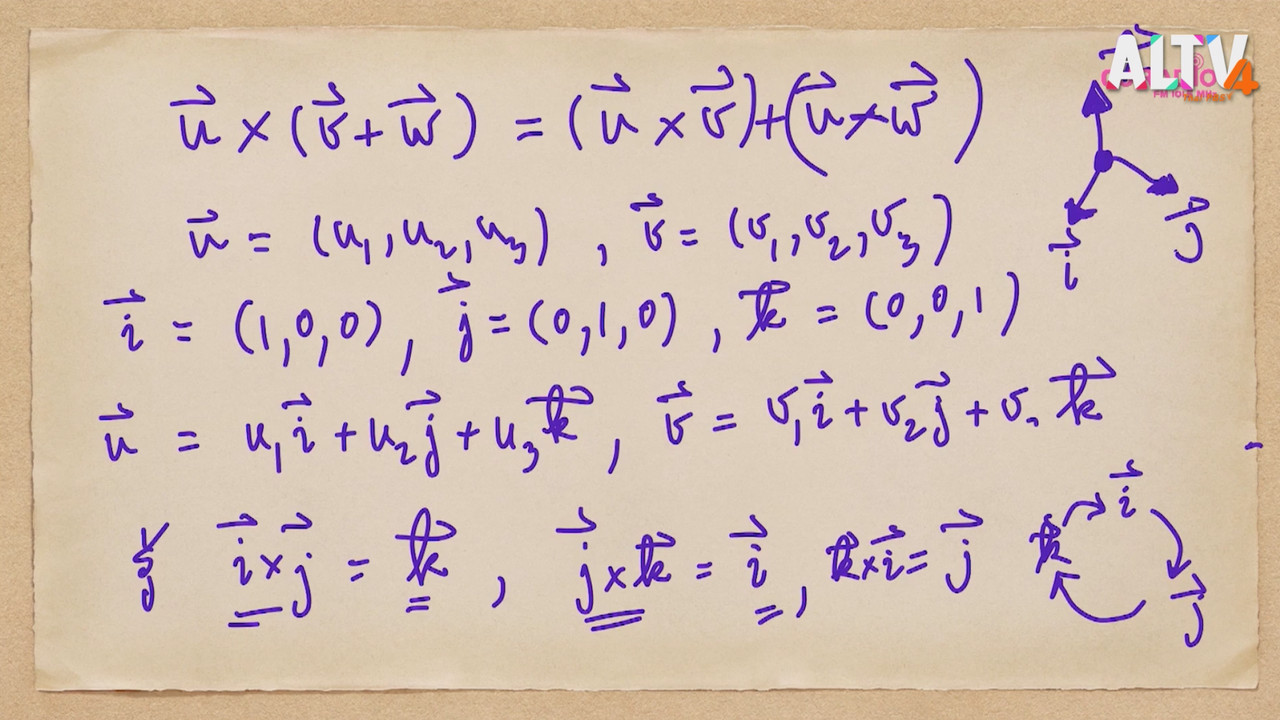 ALTV4
u⃗ × (v⃗ + w⃗) = (u⃗ × v⃗) + (u⃗ × w⃗)
u⃗ = (u₁, u₂, u₃) , v⃗ = (v₁, v₂, v₃)
i⃗
j⃗
i⃗ = (1,0,0) , j⃗ = (0,1,0) , k⃗ = (0,0,1)
u⃗ = u₁i⃗ + u₂j⃗ + u₃k⃗ , v⃗ = v₁i⃗ + v₂j⃗ + v k⃗
i⃗ × j⃗ = k⃗ , j⃗ × k⃗ = i⃗ , k⃗ × i⃗ = j⃗
i⃗
k⃗
j⃗